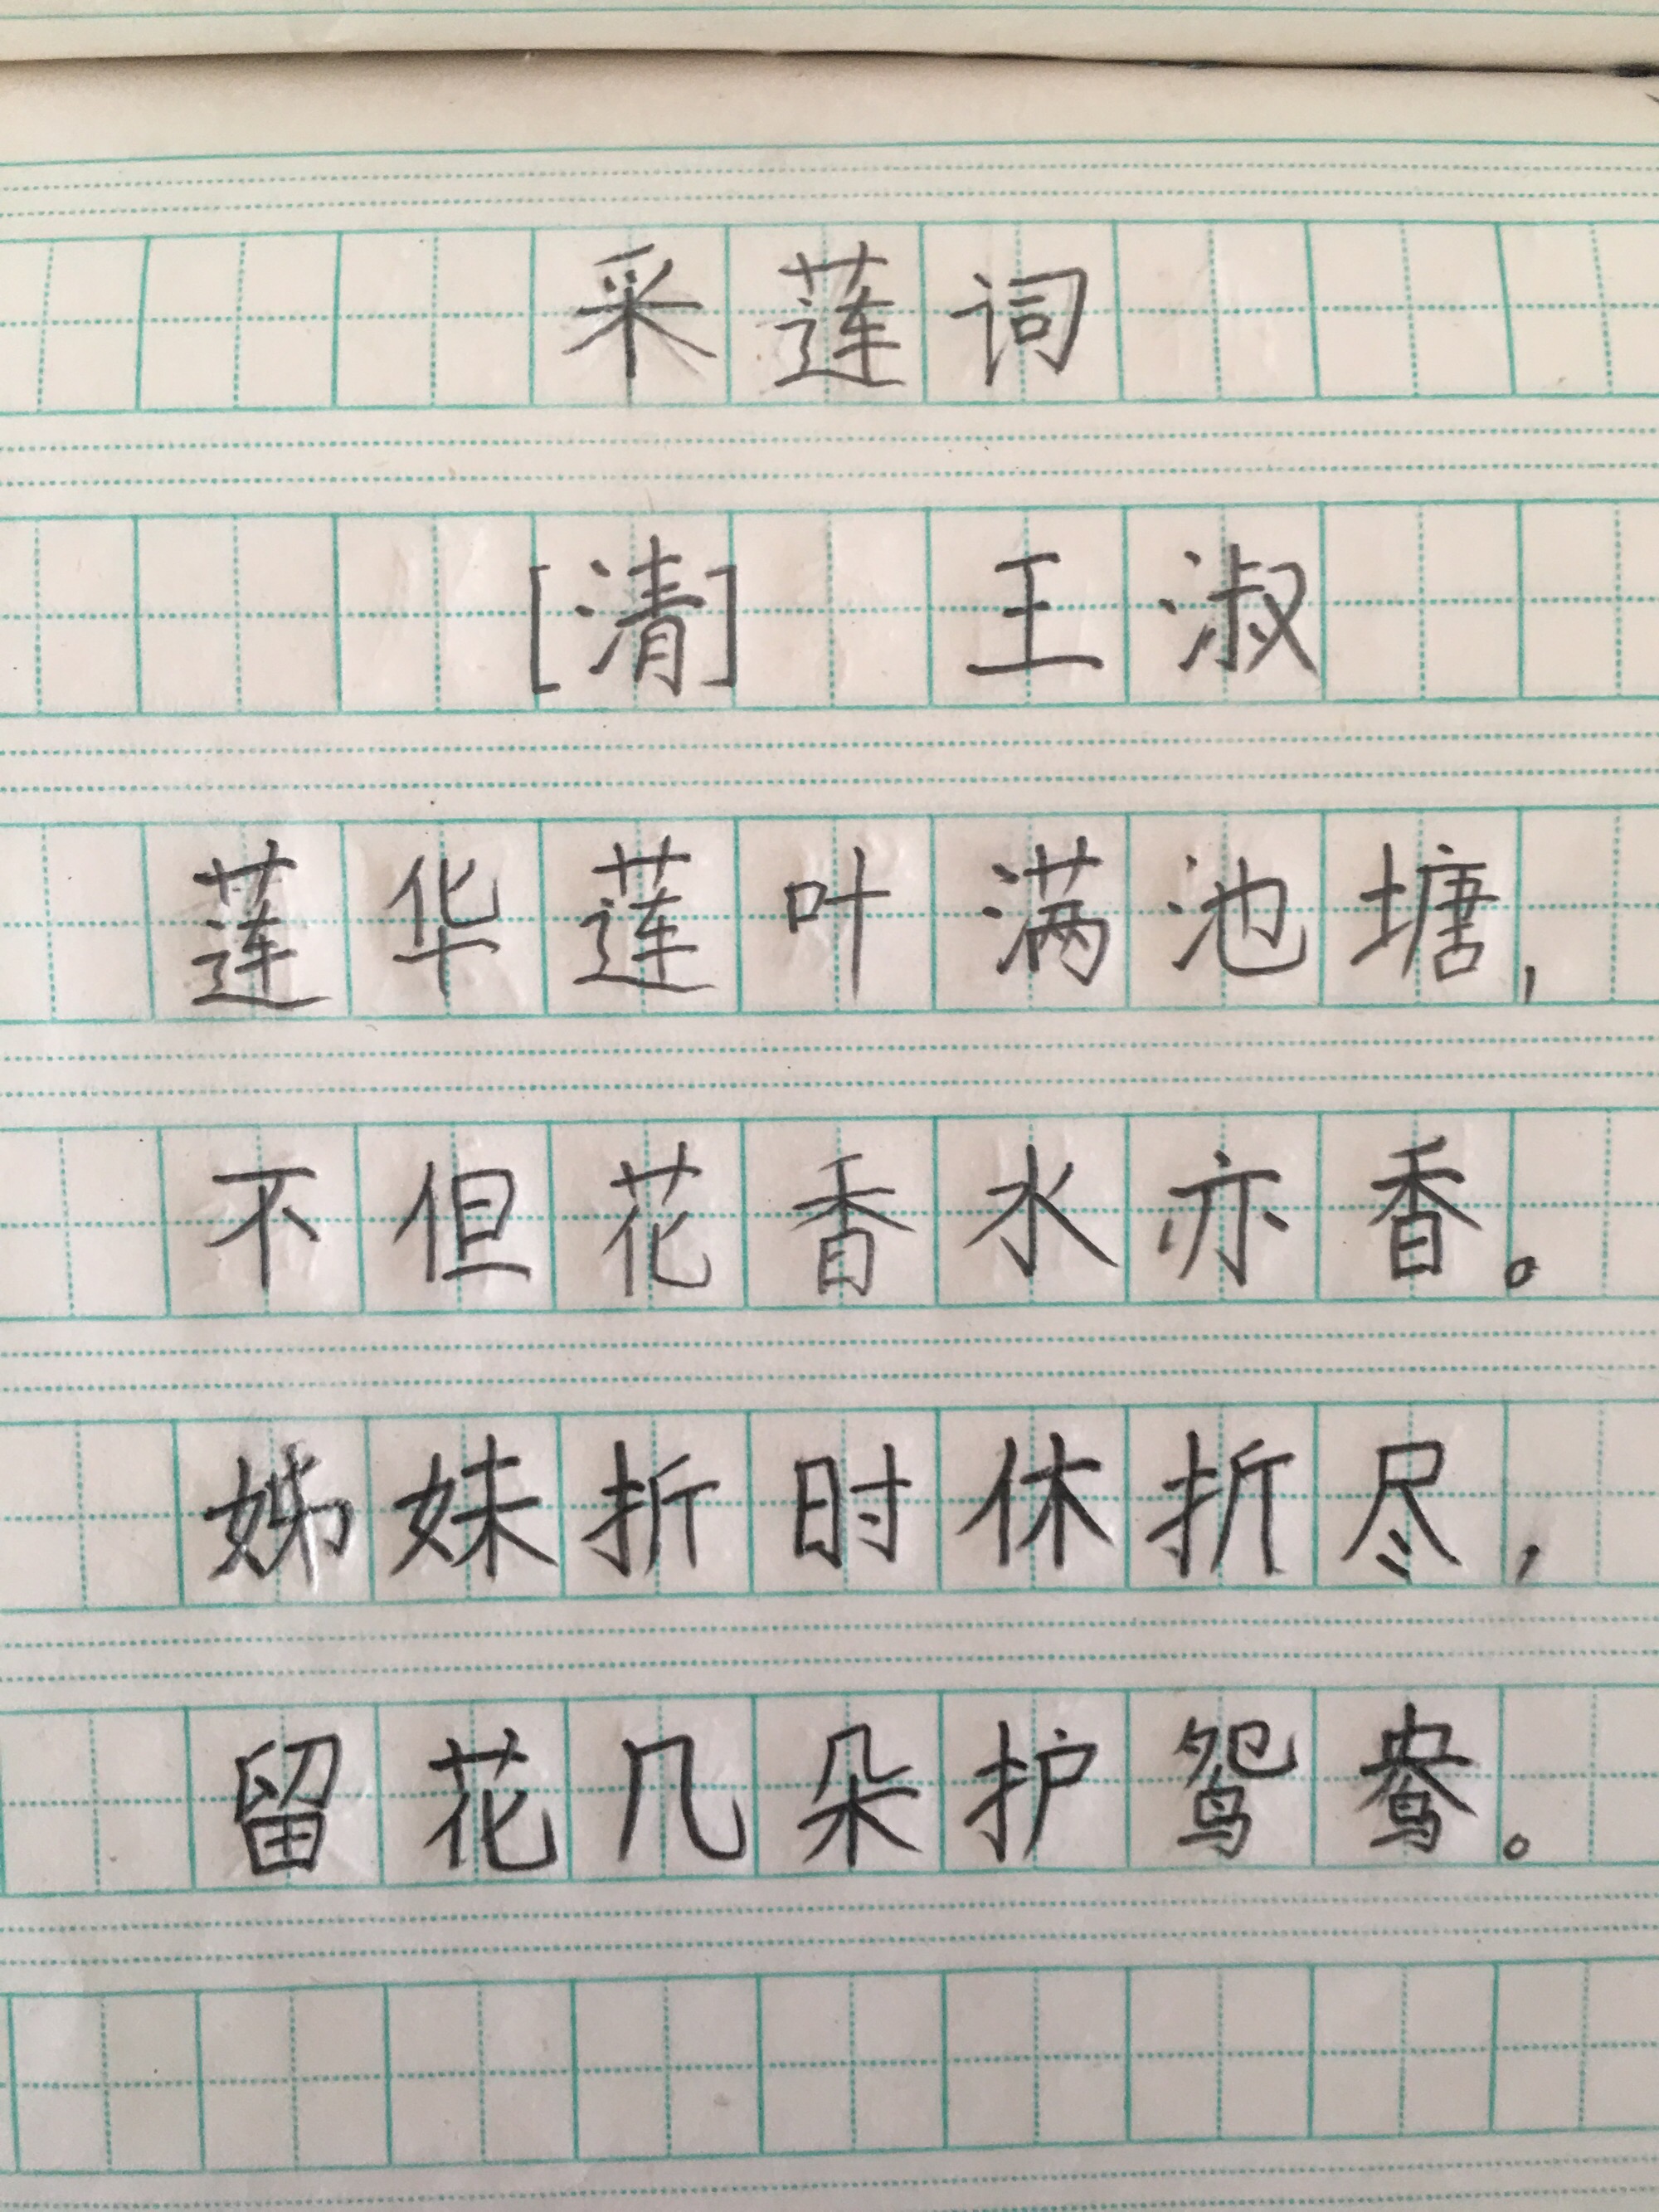 采莲词
[清] 王淑
莲华莲叶满池塘,
不但花香水亦香。
姊妹折时休折尽,
留花几朵护鸳鸯。